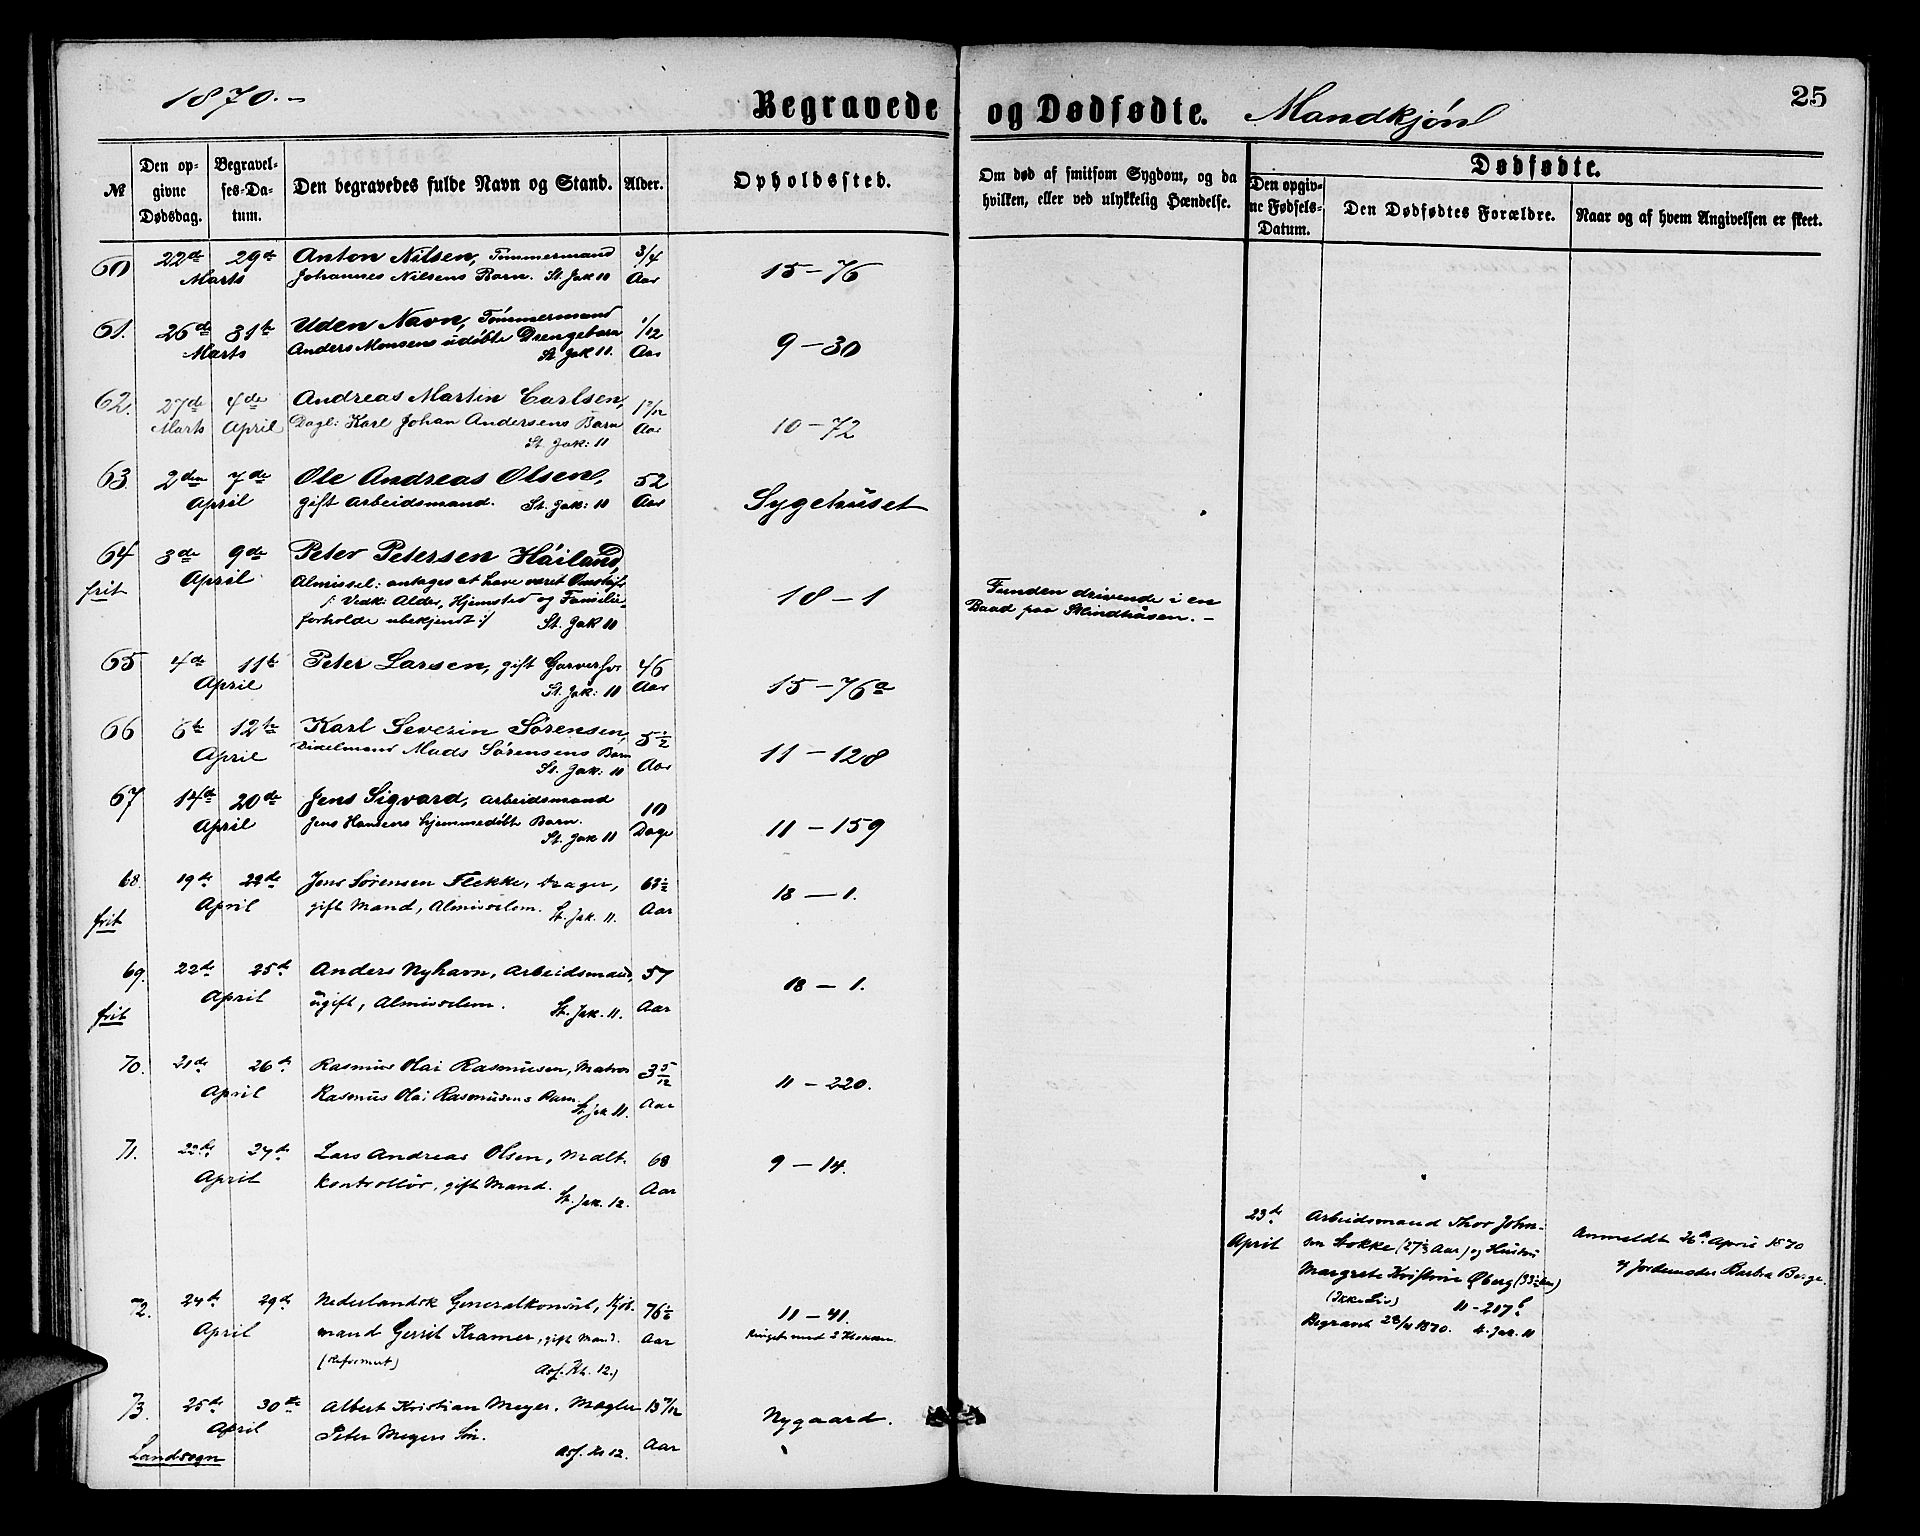 1870.-
Begravede og Dødfødte. Mandkjøn
25
№
Den opgivne Dødsdag.
Begravelses-Datum.
Den begravedes fulde Navn og Stand.
Alder.
Opholdssted.
Om død af smitsom Sygdom, og da hvilken, eller ved ulykkelig Hændelse.
Dødfødte.
Den opgivne Fødsels-Datum.
Den Dødfødtes Forældre.
Naar og af hvem Angivelsen er skeet.
60 22de 29de Anton Nilsen, Tømmermand 3/4
Marts Johannes Nilsens Barn. St. Jak 11 Aar 15-76
61. 26de 31te Uden Navn, Tømmermand 1/12
Marts Anders Monsens udøbte Drengebarn Aar 9-30
St. Jak 11.
62. 27de 4de Andreas Martin Carlsen,
Marts April Dagl: Karl Johan Andersens Barn Aar 10-72
St. Jak: 11
63 2den 7de Ole Andreas Olsen, 52
April gift Arbeidsmand. St. Jak: 11 Aar Sygehuset
64 3de 9de Peter Petersen Høiland,
frit April Almissel: antages at have været
/: Vedk: Alder, Hjemsted og Familie- 18-1
forholde ubekjendt :/ St. Jak 11
Funden drivende i en
Baad paa
65 4de 11te Peter Larsen, gift Garversv 46
April St. Jak: 11 Aar 15-76a
66 6te 12te Karl Severin Sørensen, 5 1/2
April Mads Sørensens Barn
St. Jak: 11 Aar 11-128
67 14de 20de Jens Sigvard, Arbeidsmand 10
April Jens Hansens hjemmedøbte Barn. Dage 11-159
St. Jak 11
68. 19de 22de Jens Sørensen Flekke, Drager, 63 1/2
April gift Mand, Almisselem. St. Jak. 11. Aar 18-1.
frit
69. 22de 25de Anders Nyhavn, Arbeidsmand, 57
April ugift, Almisselem. St. Jak. 11. Aar 18-1.
frit
70. 21de 26de Rasmus Olai Rasmusen, Matros 3 5/12
April Rasmus Olai Rasmusens Barn. St. Jak 11. Aar 11-220.
71. 22de 27de Lars Andreas Olsen, Malt- 68
April kontrollør, gift Mand. St. Jak. 12. Aar 9-14.
23de April
Arbeidsmand Thor John-
sen Stokke (27 1/2 Aar) og Hustru
Margrete Kristine Øberg (33 Aar)
(Ikke Liv) 11-217
Begravet 28/4 1870. St. Jak. 11
Anmeldt 26de April 1870
af Jordemoder Barbra Berge
72. 24de 29de Nederlandsk Generalkonsul, Kjøb- 76 1/2
April mand Gerrit Kramer, gift Mand. Aar 11-41.
(Reformert) Asf. Kh. 12.)
Ringet med 2 Klokker.
73. 25de 30te Albert Kristian Meyer, Mægler 13 7/12
April Peter Meyers Søn. Aar Nygaard.
Landsogn Asf. Kh 12.